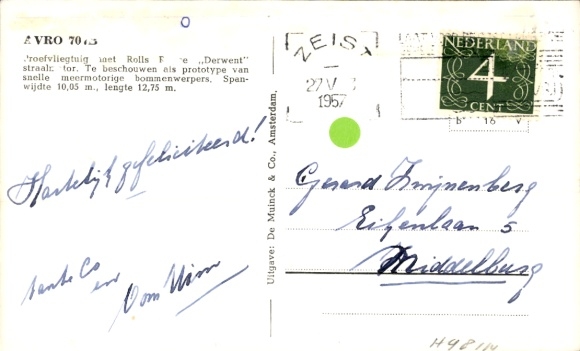 AVRO 707B
Proefvliegtuig met Rolls Royce „Derwent"
straalmotor. Te beschouwen als prototype van
snelle meermotorige bommenwerpers. Span-
wijdte 10,05 m., lengte 12,75 m.
Hartelijk gefeliciteerd!
tante Co
en
Oom Wim
Uitgave: De Muinck & Co., Amsterdam.
ZEIST
27 V
1957
NEDERLAND
4
CENT
16 V
Gerard Zwijnenberg
Eikenlaan 5
Middelburg
H981